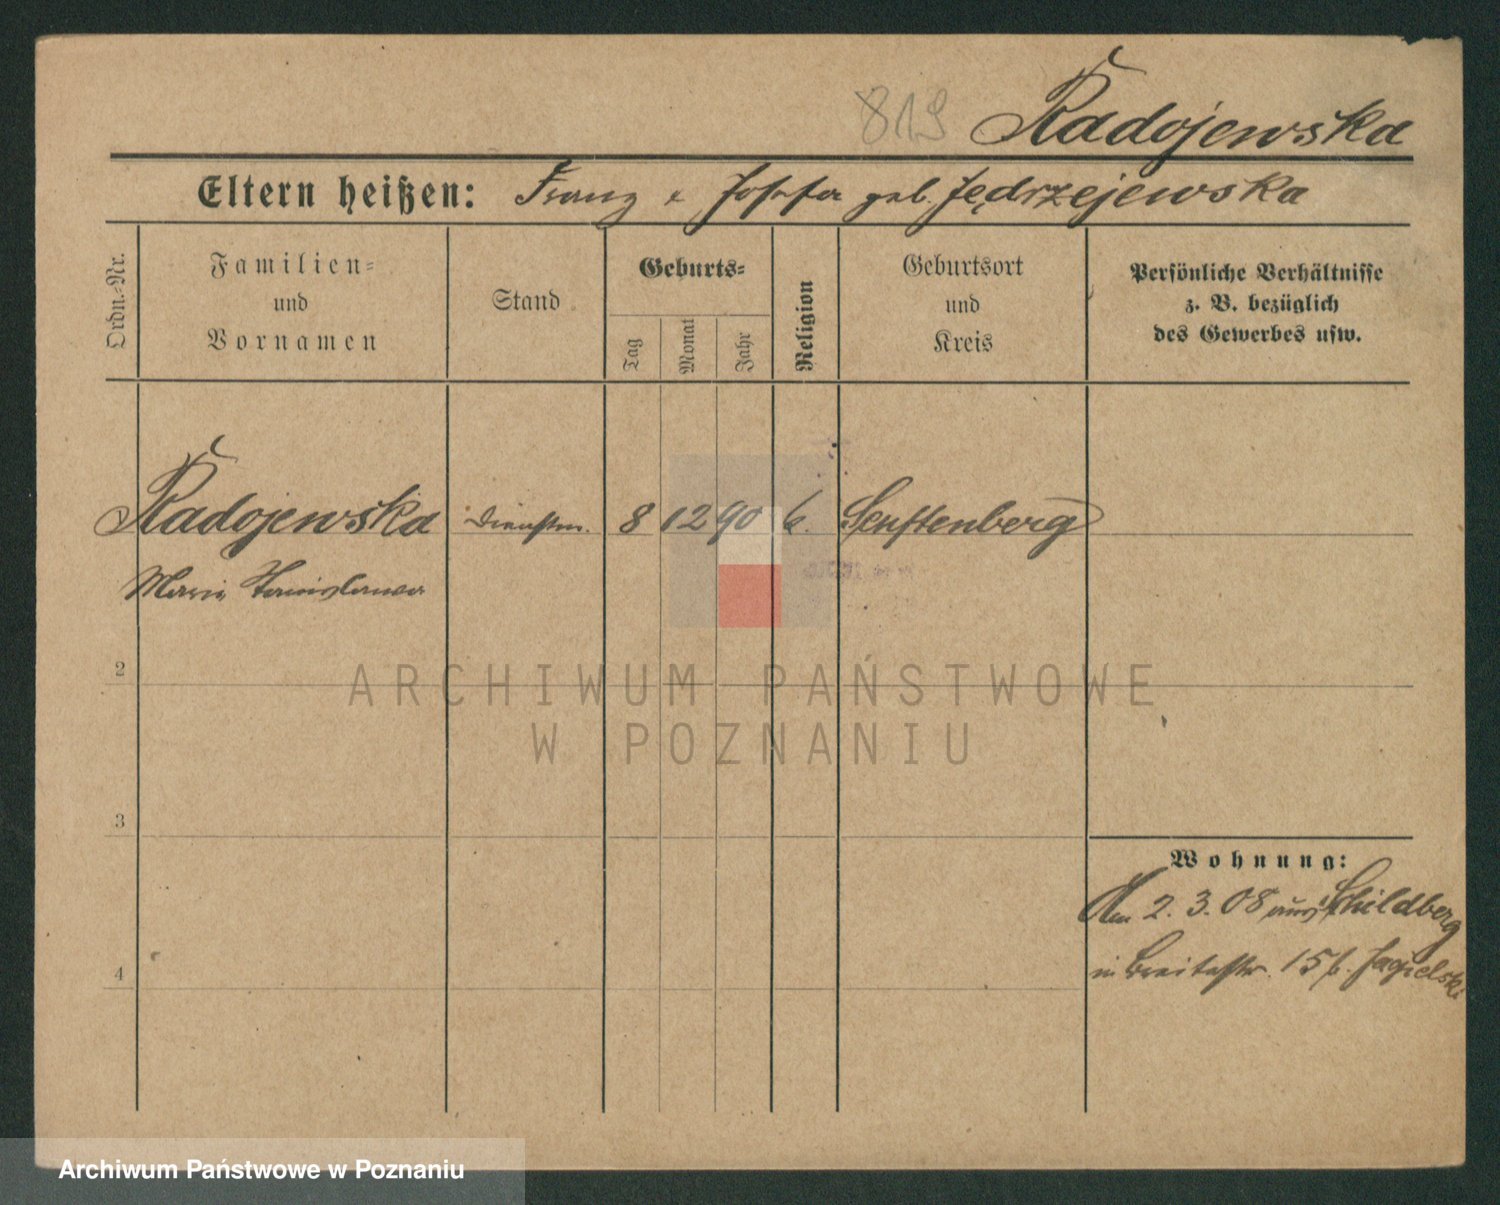 819 Radojewska
Eltern heißen: Franz u Josefa geb. Jędrzejewska
Ordn.-Nr.
Familien-
und
Vornamen
Stand
Geburts-
Tag
Monat
Jahr
Religion
Geburtsort
und
Kreis
Persönliche Verhältnisse
z. B. bezüglich
des Gewerbes usw.
Radojewska Dienstm. 8 12 90 k. Senftenberg
Maria Stanislawa
2
3
4
Wohnung:
Am 2. 3. 08 aus Schildberg
in Breitestr. 15 b. Jagielski
ARCHIWUM PAŃSTWOWE
W POZNANIU
Archiwum Państwowe w Poznaniu